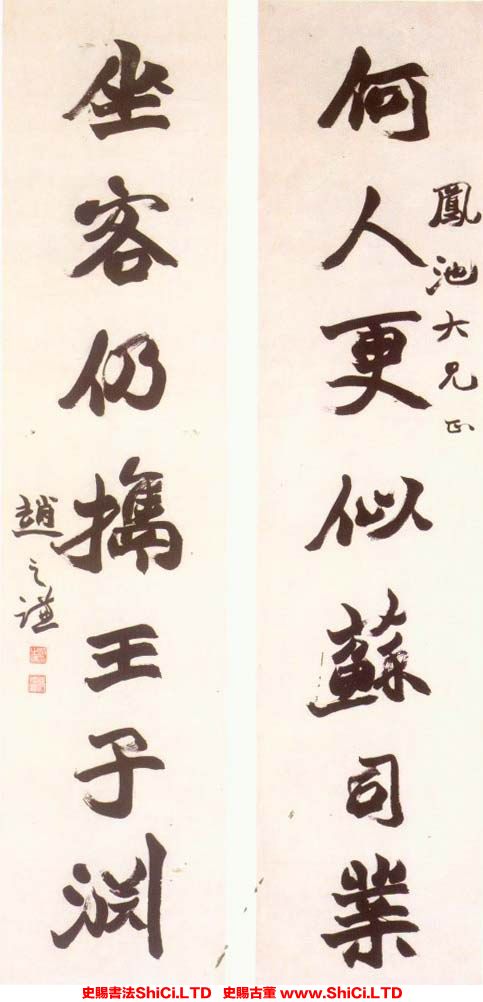 鳳池大兄正
何人更似蘇司業
坐客仍攜王子淵
趙之謙
史賜書法ShiCi.LTD 史賜古董 www.ShiCi.LTD